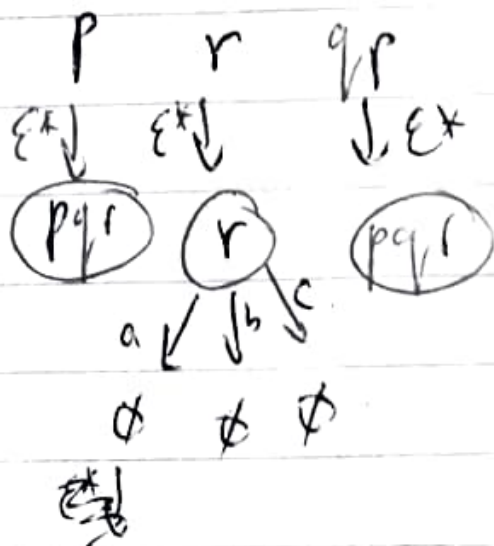 p r qr
ε* ε* ε*
pqr r pqr
a b c
φ φ φ